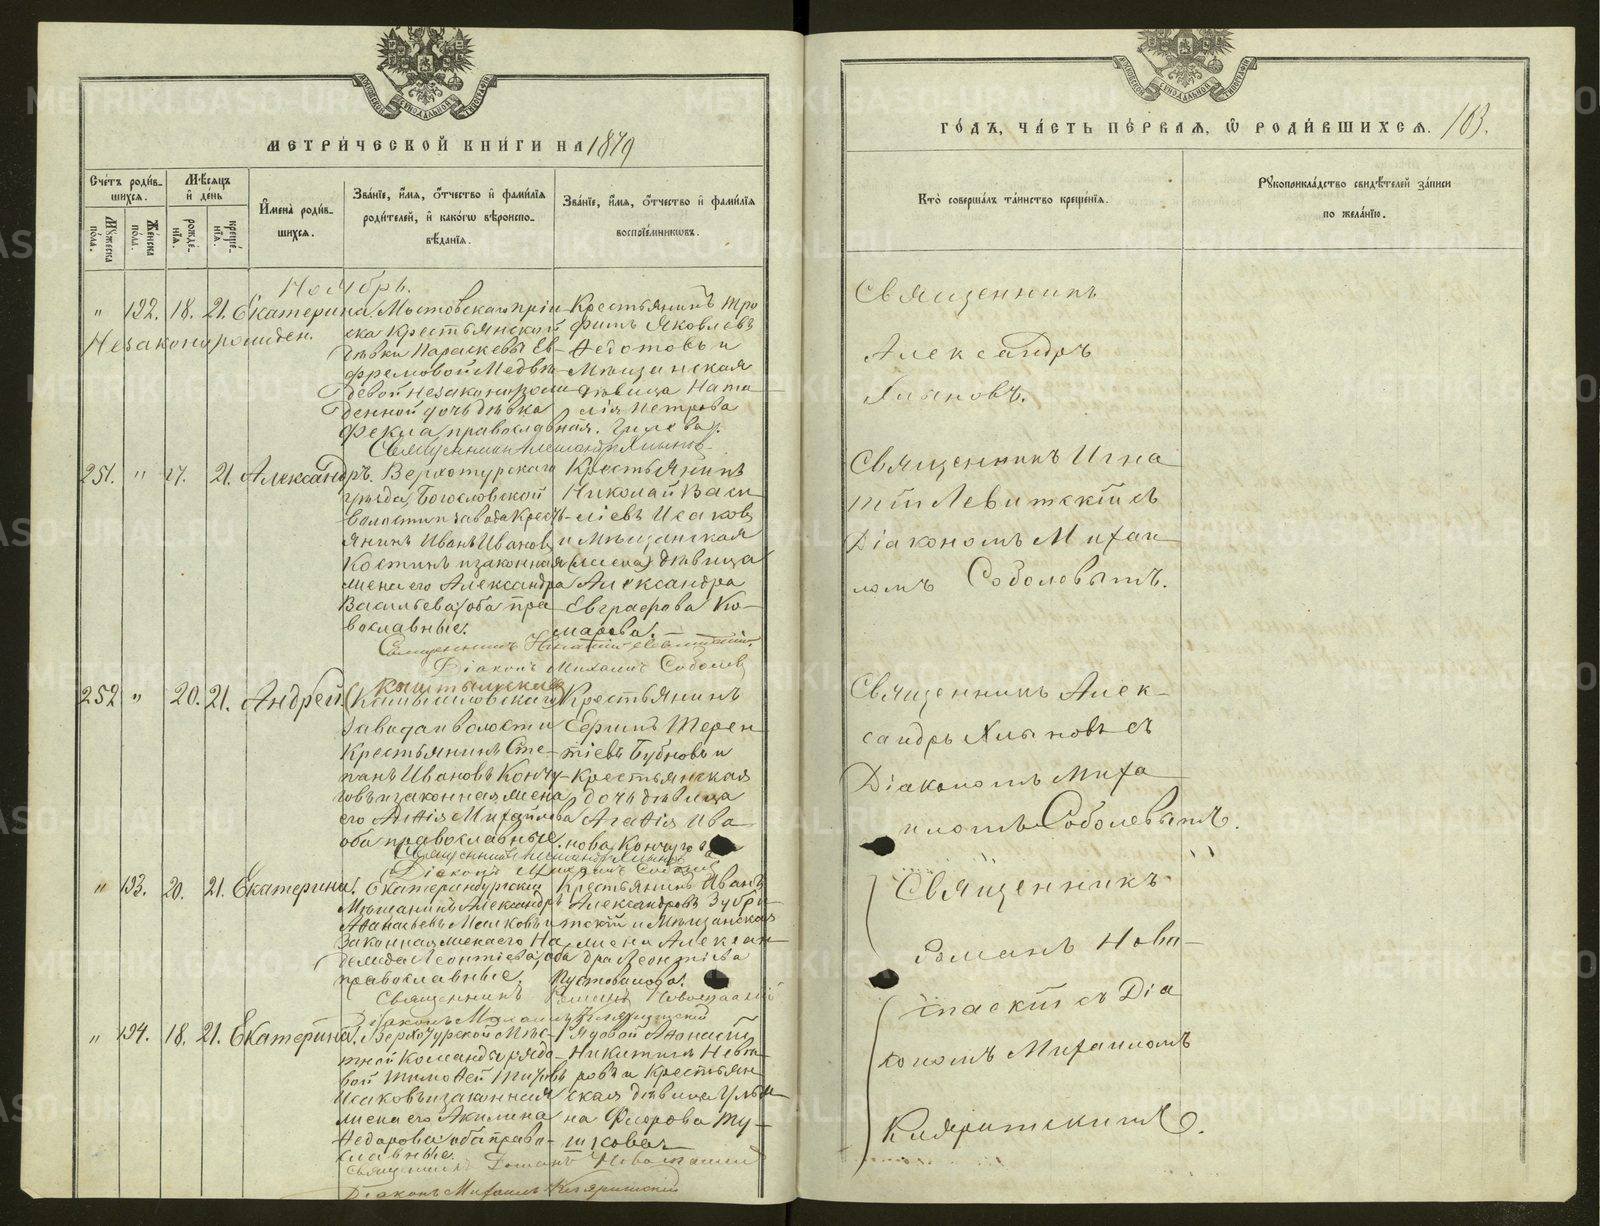 МЕТРИ́ЧЕСКОЙ КНИ́ГИ НА 1879
Сче́тъ роди́в-
шихся.
Мꙋ́жеска
по́ла.
Же́нска
по́ла.
Мѣ́сяцъ
и҆ де́нь
рожде́-
нїѧ.
креще́-
нїѧ.
И҆мена̀ роди́в-
шихся.
Зва́нїе, и҆́мѧ, ѻ҆́тчество и҆ фами́лїѧ
роди́телей, и҆ како́гѡ вѣроиспо-
вѣ́данїѧ.
Зва́нїе, и҆́мѧ, ѻ҆́тчество и҆ фами́лїѧ
воспрїе́мникѡвъ.
Ноябрь.
" 192. 18. 21. Екатерина
Незаконорожден.
Мостовская
ска Крестьянской
дѣвки Параскевы Ев-
фремовой Медвѣ-
девой незаконорож-
денной дочь дѣвка
Фекла, православная.
Крестьянинъ Тро
фимъ Яковлевъ
Ѳедотовъ и
Мѣщанская
дѣвица Ната
лія Петрова
Священникъ Александръ Хлыновъ
251. " 17. 21. Александръ.
Верхотурскаго
уѣзда, Богословской
волости и завода Кресть-
янинъ Иванъ Ивановъ
Костинъ и законная
жена его Александра
Васильева, оба пра
вославные.
Крестьянинъ
Николай Васи
ліевъ Исаковъ
и Мѣщанская
(жена) дѣвица
Александра
Евграфова Ко-
марова.
Священникъ Игнатій Левитскій
Діаконъ Михаилъ Соболевъ
252 " 20. 21. Андрей.
(Камышловскаго)
завода и волости
Крестьянинъ Сте-
панъ Ивановъ Кончу-
говъ и законная жена
его Агнія Михайлова
оба православные.
Крестьянинъ
Ефимъ Терен
тіевъ Бубновъ и
Крестьянская
дочь дѣвица
Агнія Ива
нова Кончугова
Священникъ Александръ Хлыновъ
Діаконъ Михаилъ Соболевъ
" 193. 20. 21. Екатерина.
Екатеринбургскій
Мѣщанинъ Александръ
Аѳанасьевъ
законная жена его На
дежда Леонтіева, оба
православные.
Крестьянинъ Иванъ
Александровъ Зубри
тскій и Мѣщанская
жена Алексан
дра Леонтіева
Пустовалова.
Священникъ Романъ Новоспаскій
Діаконъ Михаилъ Кляритскій
" 194. 18. 21. Екатерина.
Верхотурской Мѣс-
тной Команды рядо-
вой Тимоѳей Титовъ
Исаковъ и законная
жена его Акилина
Ѳедорова, оба право-
славные.
Рядовой Аѳанасій
Никитинъ
ровъ и Крестьян
ская дѣвица Улья
на Фирова Ту-
шкова
Священникъ Романъ Новоспаскій
Діаконъ Михаилъ Кляритскій
ГО́ДЪ, ЧА́СТЬ ПЕ́РВАЯ, Ѽ РОДИ́ВШИХСЯ. 103.
Кто̀ соверша́лъ та́инство креще́нїѧ.
Рꙋкоприкла́дство свидѣ́телей за́писи
по жела́нїю.
Священникъ
Александръ
Хлыновъ.
Священникъ Игна
тій Левитскій съ
Діакономъ Михаи
ломъ Соболевымъ.
Священникъ Алек-
сандръ Хлыновъ съ
Діакономъ Миха
иломъ Соболевымъ.
Священникъ
Романъ Ново-
спаскій съ Діа
кономъ Михаиломъ
Кляритскимъ.